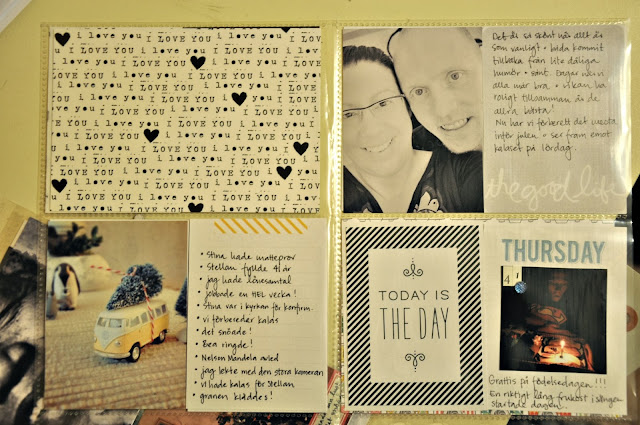 i love you I LOVE YOU i love you
I LOVE YOU i love you I LOVE YOU
i love you I LOVE YOU i love you
I LOVE YOU i love you I LOVE YOU
i love you I LOVE YOU i love you
I LOVE YOU i love you I LOVE YOU
i love you I LOVE YOU i love you
I LOVE YOU i love you I LOVE YOU
i love you I LOVE YOU i love you
I LOVE YOU i love you I LOVE YOU
Det är så skönt när allt är
som vanligt • båda kommit
tillbaka från lite dåliga
humör • sånt. Dagar när vi
alla mår bra, • vi kan ha
roligt tillsammans är de
allra bästa!
Nu har vi förberett det mesta
inför julen • ser fram emot
kalaset på lördag.
the good life
• Stina hade matteprov
• Stellan fyllde 41 år
• jag hade lönesamtal
• jobbade en HEL vecka!
• Stina var i kyrkan för konfirm.
• vi förbereder kalas
• det snöade!
• Bea ringde!
• Nelson Mandela avled
• jag lekte med den stora kameran
• vi hade kalas för Stellan
• granen kläddes!
TODAY IS
THE DAY
THURSDAY
41
Grattis på födelsedagen!!!
En riktigt lång frukost i sängen
startade dagen.